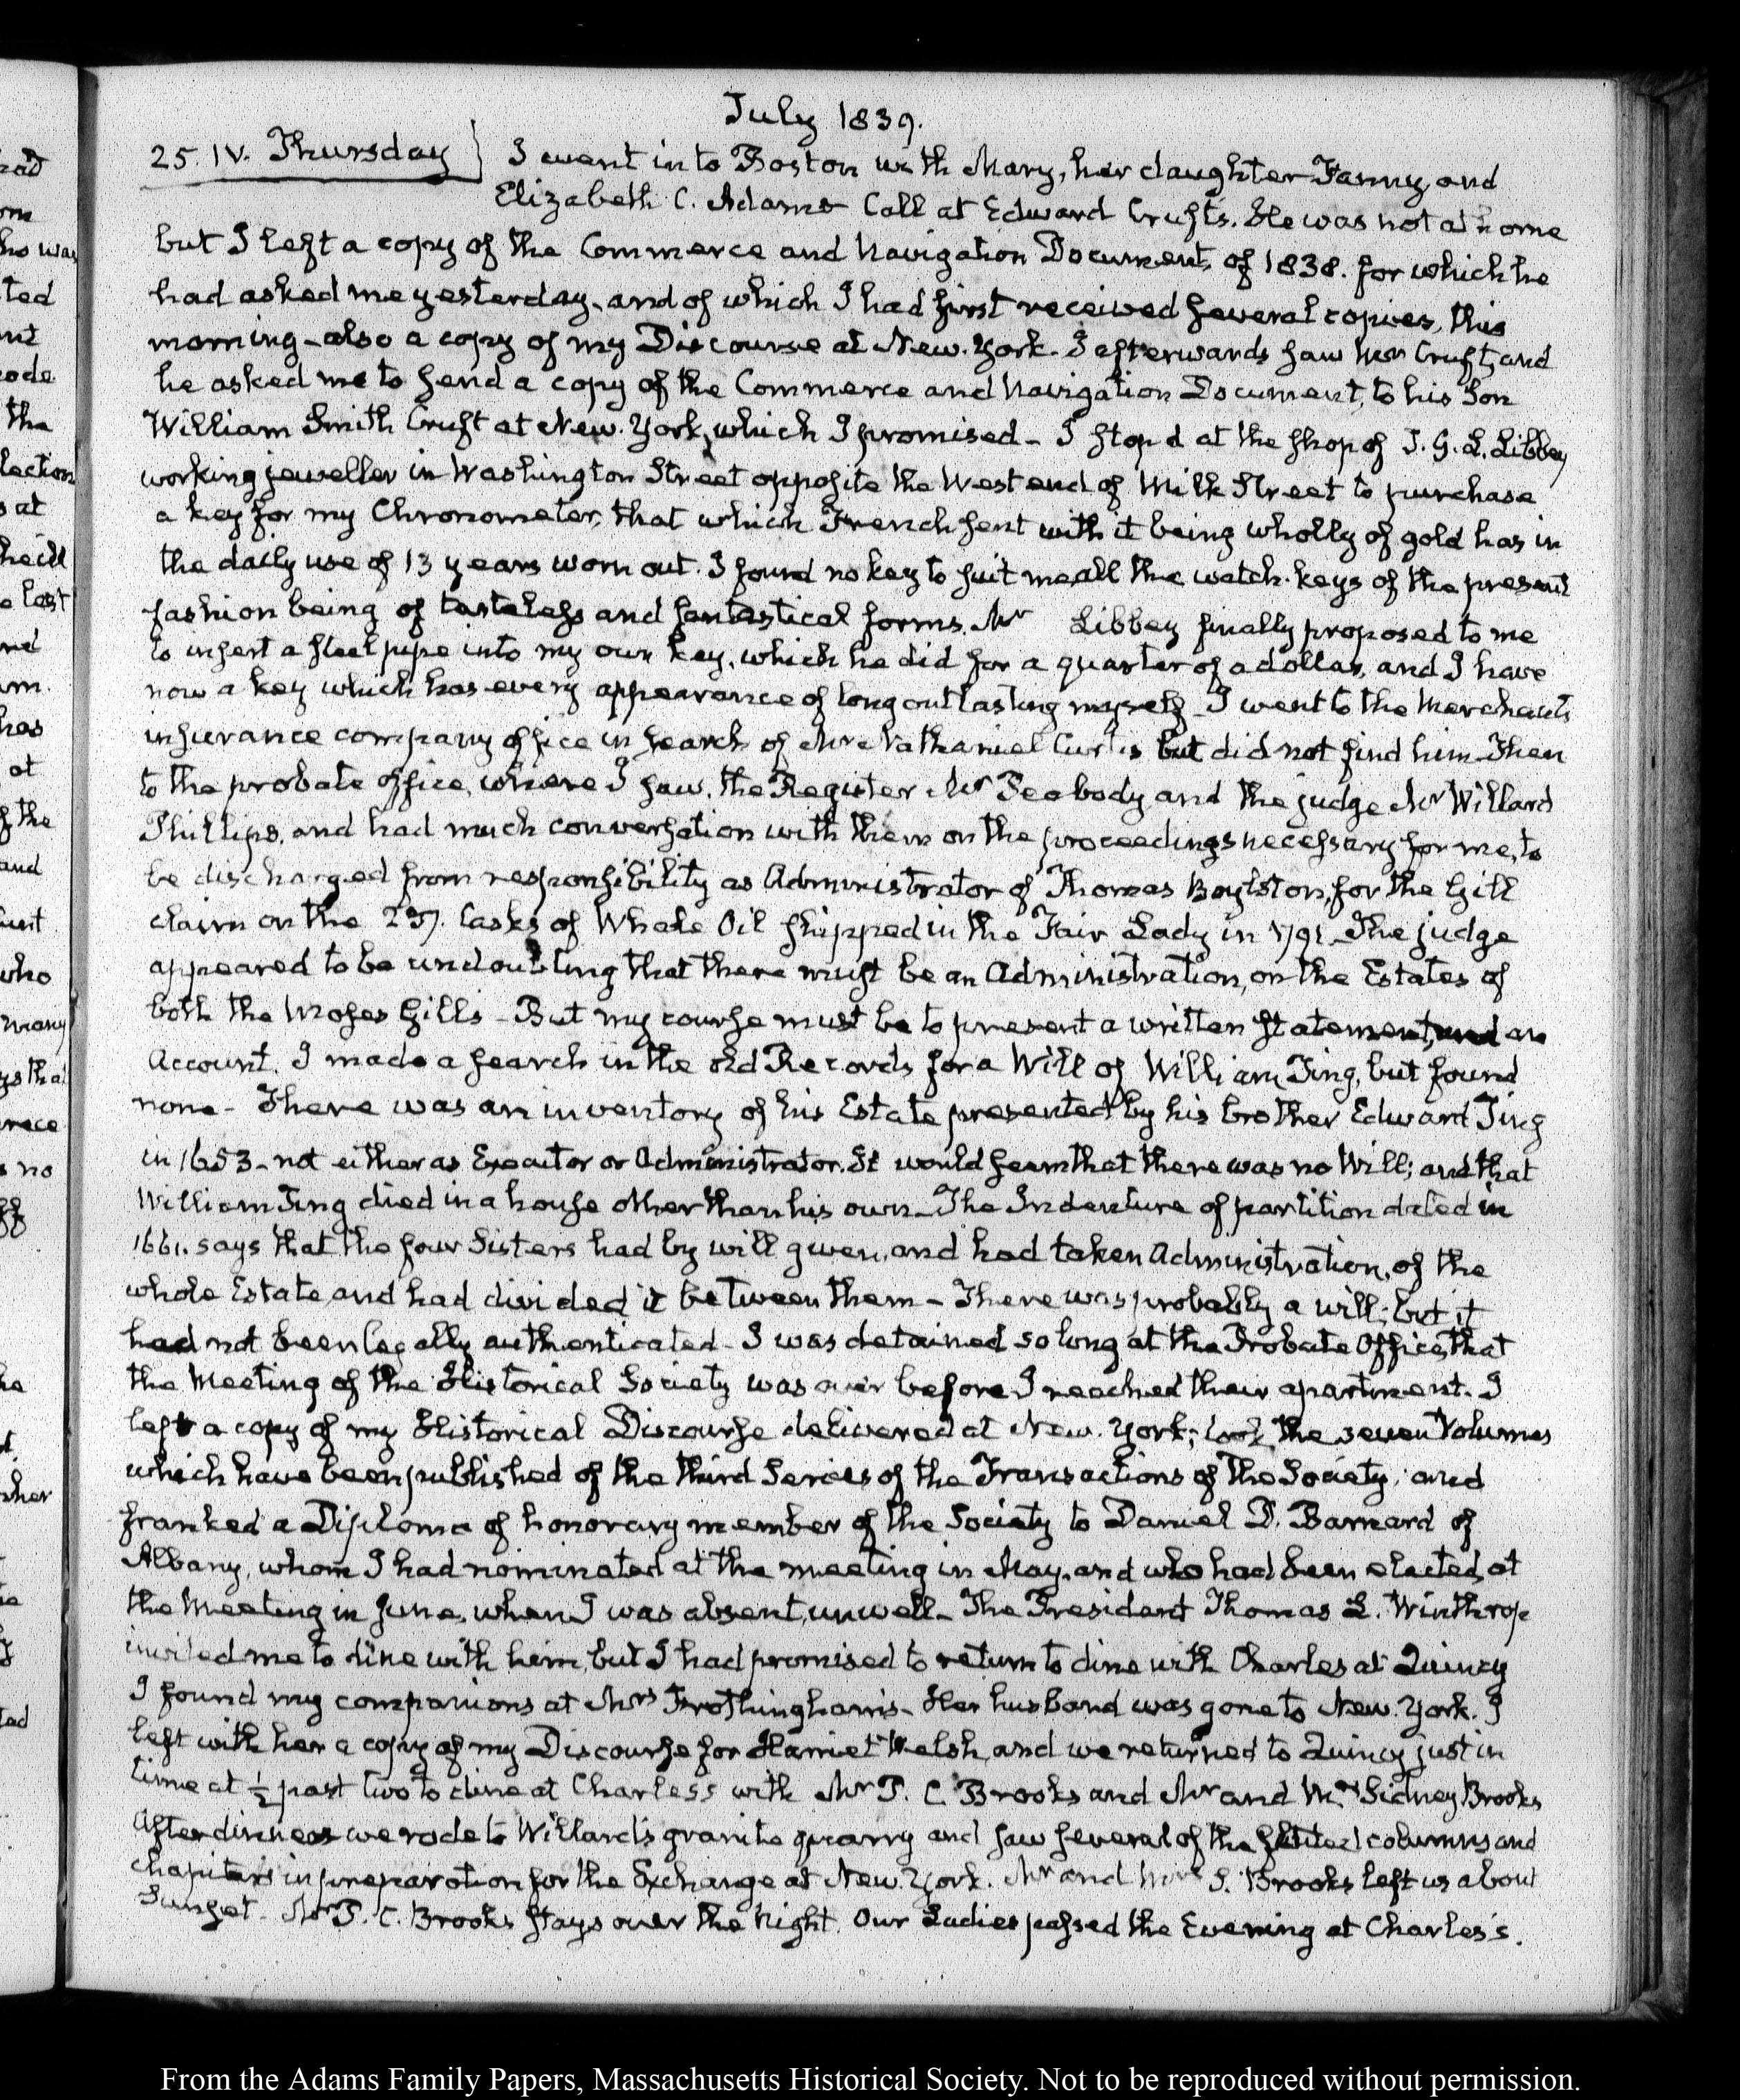 July 1839.
25. IV. Thursday } I went in to Boston with Mary, her daughter Fanny, and
Elizabeth C. Adams Call at Edward Crufts. He was not at home
but I left a copy of the Commerce and Navigation Document, of 1838. for which he
had asked me yesterday, and of which I had first received several copies, this
morning – also a copy of my Discourse at New-York. I afterwards saw Mr Cruft, and
he asked me to send a copy of the Commerce and Navigation Document, to his Son
William Smith Cruft at New-York, which I promised – I stop'd at the shop of J. G. L. Libbey
working jeweller in Washington Street opposite the West end of Milk Street to purchase
a key for my Chronometer, that which French sent with it being wholly of gold has in
the daily use of 13 years worn out. I found no key to suit me all the watch-keys of the present
fashion being of tasteless and fantastical forms. Mr Libbey finally proposed to me
to insert a steel pipe into my own key, which he did for a quarter of a dollar, and I have
now a key which has every appearance of long outlasting myself – I went to the Merchants
insurance company office in search of Mr Nathaniel Curtis but did not find him – Then
to the probate office, where I saw, the Register Mr Peabody and the judge Mr Willard
Phillips, and had much conversation with them on the proceedings necessary for me, to
be discharged from responsibility as Administrator of Thomas Boylston, for the Gill
claim on the 237. Casks of Whale Oil shipped in the Fair Lady in 1791 – The judge
appeared to be undoubting that there must be an Administration, on the Estates of
both the Moses Gills – But my course must be to present a written statement, and an
Account. I made a search in the old Records for a Will of William Ting, but found
none – There was an inventory of his Estate presented by his brother Edward Ting
in 1653 – not either as Executor or Administrator. It would seem that there was no Will; and that
William Ting died in a house other than his own – The Indenture of partition dated in
1661. says that the four Sisters had by will given, and had taken Administration, of the
whole Estate, and had divided it between them – There was probably a will; but it
had not been legally authenticated – I was detained so long at the Probate Office, that
the Meeting of the Historical Society was over before I reached their apartment. I
left a copy of my Historical Discourse delivered at New-York; took the seven Volumes
which have been published of the third Series of the Transactions of the Society; and
franked a Diploma of honorary member of the Society to Daniel D. Barnard of
Albany, whom I had nominated at the meeting in May, and who had been elected, at
the Meeting in June, when I was absent, unwell – The President Thomas L. Winthrop
invited me to dine with him, but I had promised to return to dine with Charles at Quincy
I found my companions at Mrs Frothingham's – Her husband was gone to New-York. I
left with her a copy of my Discourse for Harriet Welsh, and we returned to Quincy just in
time at ½ past two to dine at Charles's with Mr P. C. Brooks and Mr and Mrs Sidney Brooks
After dinner we rode to Willard's granite quarry and saw several of the fluted columns and
chapiters in preparation for the Exchange at New-York. Mr and Mrs S. Brooks left us about
Sunset – Mr P. C. Brooks stays over the Night. Our Ladies passed the Evening at Charles's.
From the Adams Family Papers, Massachusetts Historical Society. Not to be reproduced without permission.